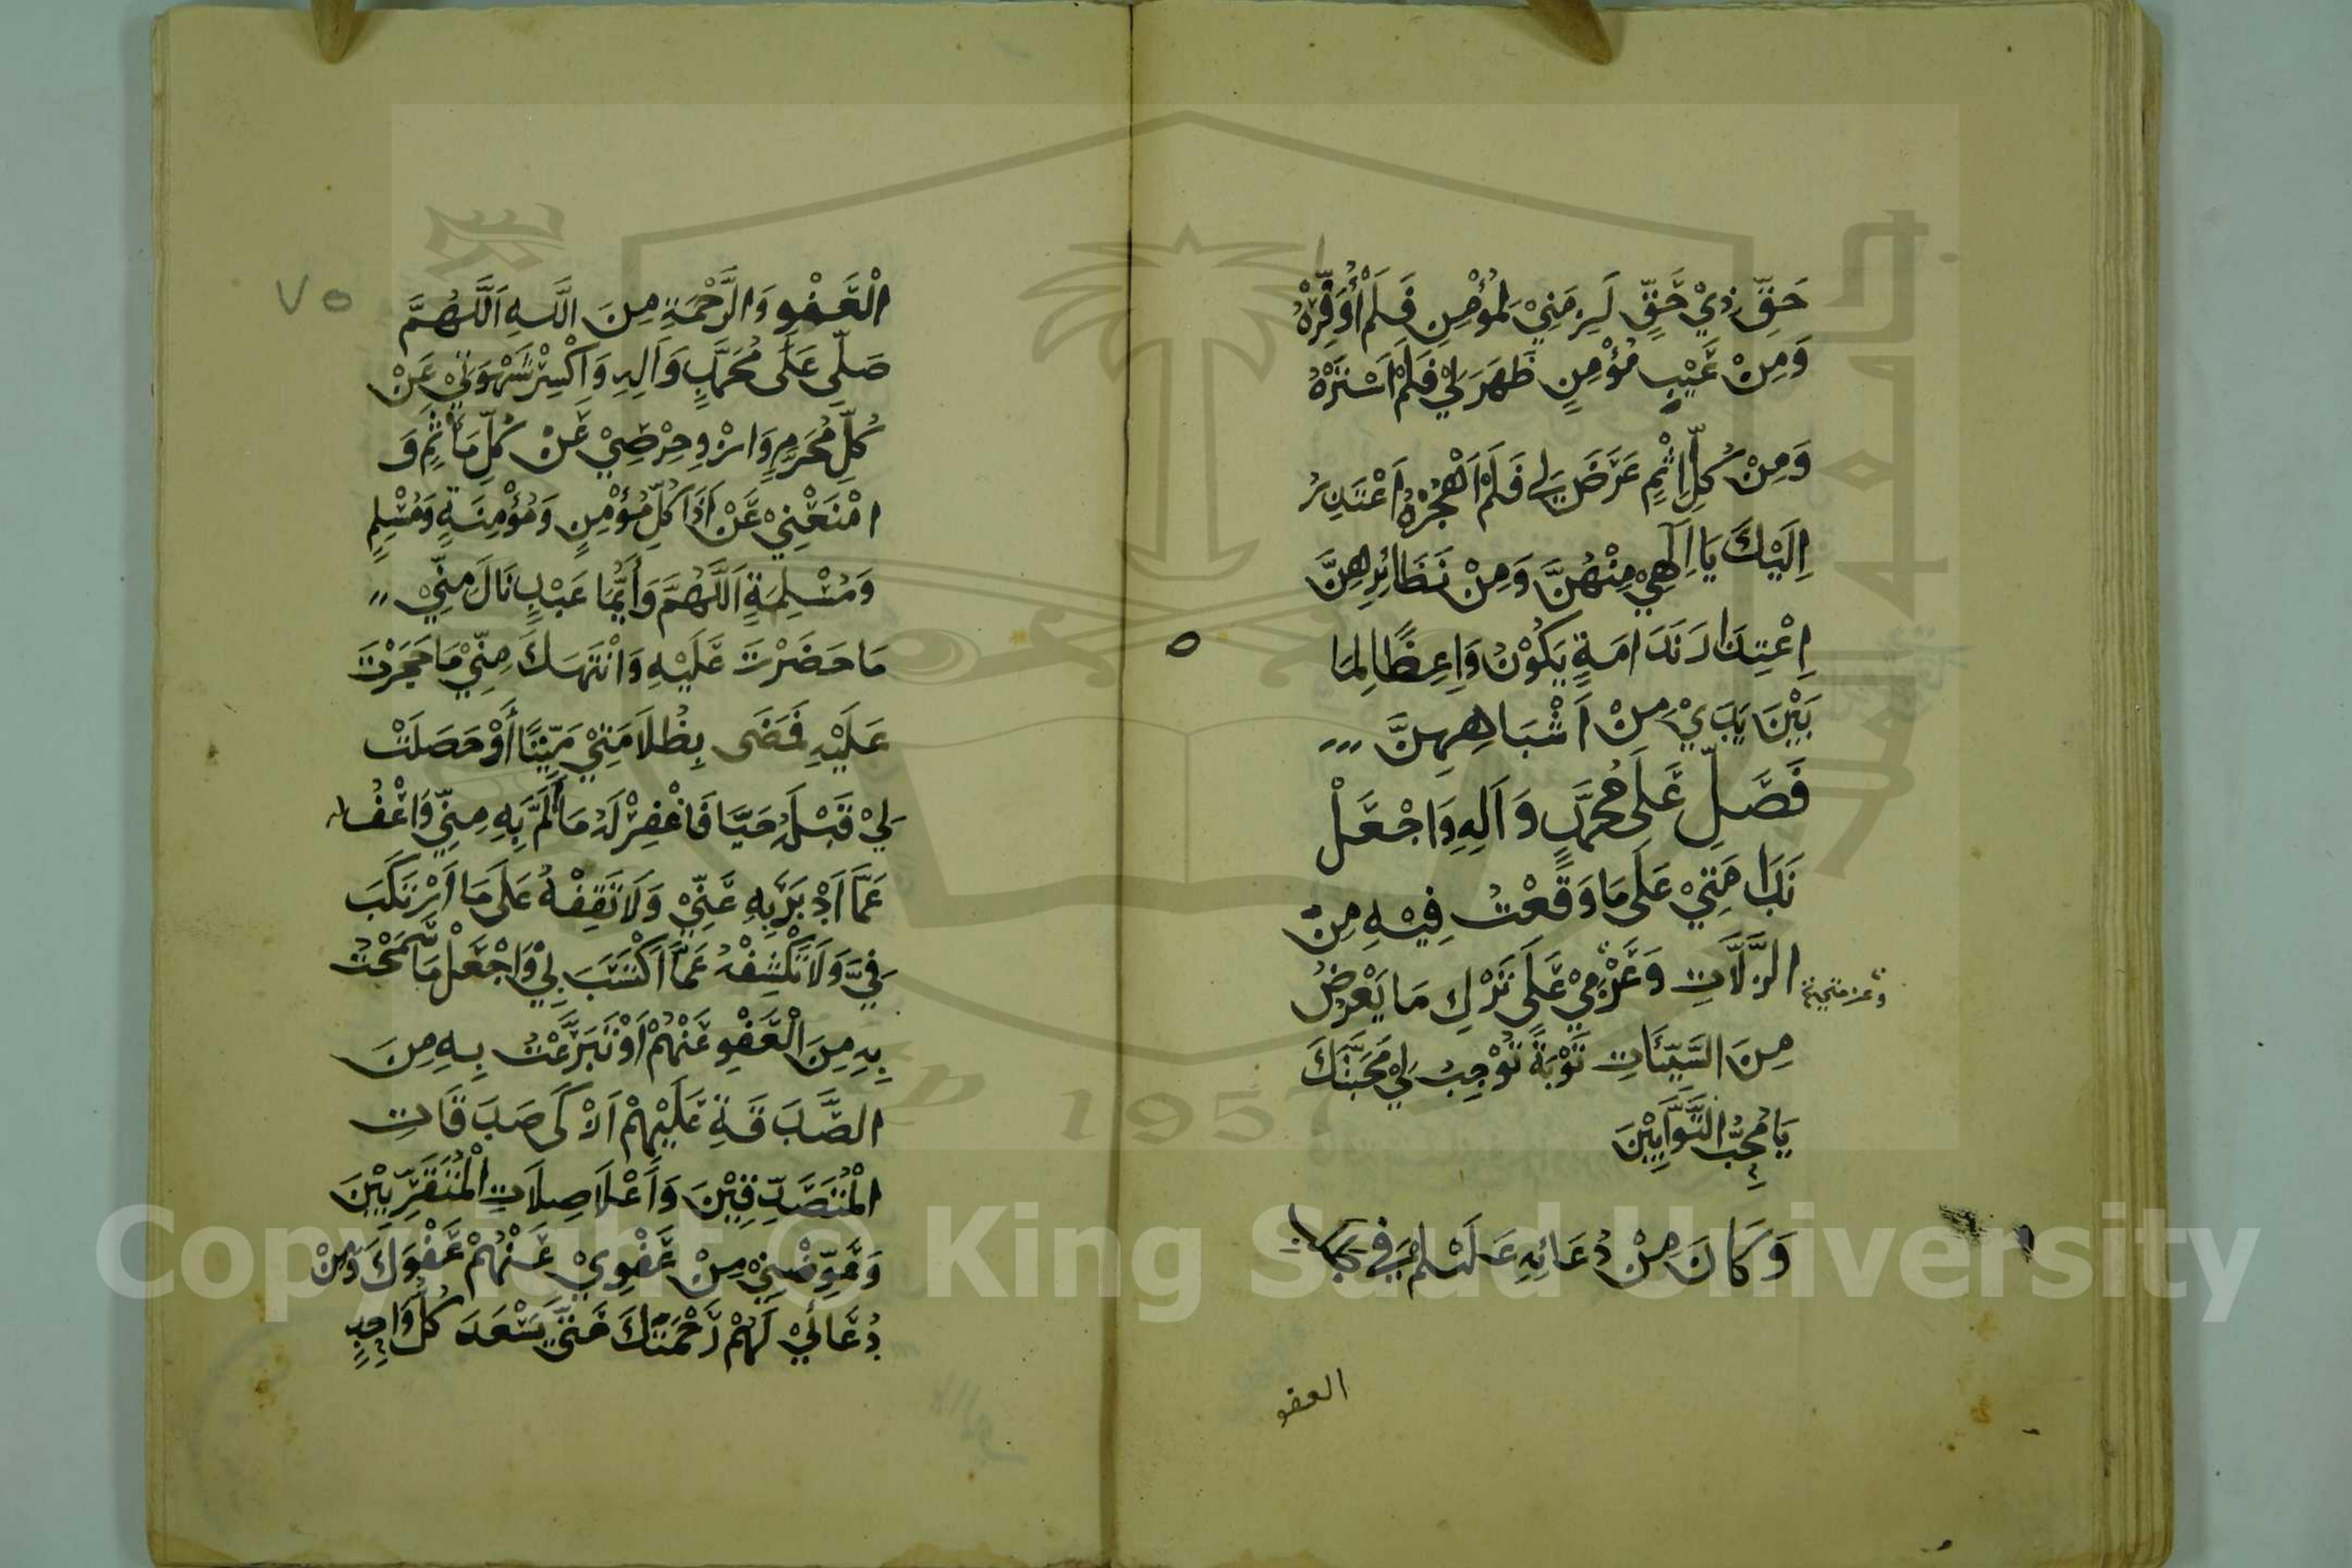 حَقِّ ذِيْ حَقٍّ لَزِمَنِيْ لِمُؤْمِنٍ فَلَمْ أُوَفِّرْهُ
وَمِنْ عَيْبِ مُؤْمِنٍ ظَهَرَ لِيْ فَلَمْ اَسْتَرْهُ
وَمِنْ كُلِّ اِثْمٍ عَرَضَ لِي فَلَمْ اَهْجُرْهُ اَعْتَذِرُ
اِلَيْكَ يَا اِلٰهِيْ مِنْهُنَّ وَمِنْ نَظَائِرِهِنَّ
اِعْتِذَارَ نَدَامَةٍ يَكُوْنُ وَاعِظًا لِمَا
بَيْنَ يَدَيْ مِنْ اَشْبَاهِهِنَّ
فَصَلِّ عَلَى مُحَمَّدٍ وَاَلِهِ وَاجْعَلْ
نَدَامَتِيْ عَلَى مَا وَقَعْتُ فِيْهِ مِنَ
الزَّلَّاتِ وَعَزْمِيْ عَلَى تَرْكِ مَا يَعْرِضُ
مِنَ السَّيِّئَاتِ تَوْبَةً تُوْجِبُ لِيْ مَحَبَّتَكَ
يَا مُحِبَّ التَّوَّابِيْنَ
وَكَانَ مِنْ دُعَائِهِ عَلَيْهِ السَّلَمُ فِي طلب
العفو
٧٥
الْعَفْوِ وَالرَّحْمَةِ مِنَ اللَّهِ اَللَّهُمَّ
صَلِّي عَلَى مُحَمَّدٍ وَاَلِهِ وَاكْسِرْ شَهْوَتِيْ عَنْ
كُلِّ مُحَرَمٍ وَازْوِ حِرْصِيْ عَنْ كُلِّ مَأْثِمٍ وَ
امْنَعْنِيْ عَنْ اَذَا كُلِّ مُؤْمِنٍ وَمُؤْمِنَةٍ وَمُسْلِمٍ
وَمُسْلِمَةٍ اَللَّهُمَّ وَأَيُّمَا عَبْدٍ نَالَ مِنِّيْ
مَا حَضَرْتَ عَلَيْهِ وَانْتَهَكَ مِنِّيْ مَا حَجَرْتَ
عَلَيْهِ فَمَضَى بِظُلَامَتِيْ مَيِّتًا أَوْ حَصَلَتْ
لِيْ قَبْلَهُ حَيًّا فَاغْفِرْ لَهُ مَا أَلَمَّ بِهِ مِنِّيْ وَاعْفُ له
عَمَّا اَدْبَرَ بِهِ عَنِّيْ وَلَا تَقِفْهُ عَلَى مَا اَرْتَكَبَ
فِيَّ وَلَا تَكْشِفْهُ عَمَّا اَكْتَسَبَ بِيْ وَاجْعَلْ مَا سَمَحْتُ
بِهِ مِنَ الْعَفْوِ عَنْهُمْ اَوْ تَبَرَّعْتُ بِهِ مِنَ
الصَّدَقَةِ عَلَيْهِمْ اَزْكَى صَدَقَاتِ
الْمُتَصَدِّقِيْنَ وَاَعْلَا صِلَاتِ الْمُتَقَرِّبِيْنَ
وَعَوِّضْنِيْ مِنْ عَفْوِيْ عَنْهُمْ عَفْوَكَ وَمِنْ
دُعَائِيْ لَهُمْ رَحْمَتَكَ حَتَّى يَسْعَدَ كُلُّ وَاحِدٍ
Copyright © King Saud University
1957